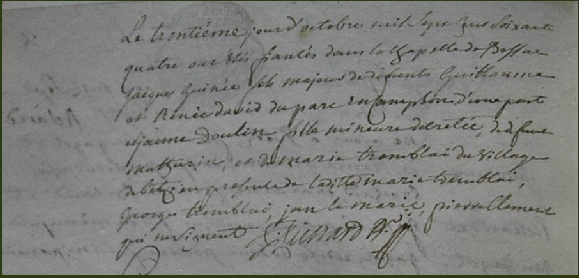 Le trentiéme jour d'octobre mil sept cens soixante
quatre ont étés fiancés dans la Chapelle de
Jacques Guinée fils majeur de defunts Guillaume
et Renée david du parc en Campbon d'une part
et jeanne Doulin fille mineure decretée, de defunt
mathurin, et de marie tremblai du village
de en presence de laditte marie tremblai,
George tremblai, jan le marie, pierre allement
qui ne signent